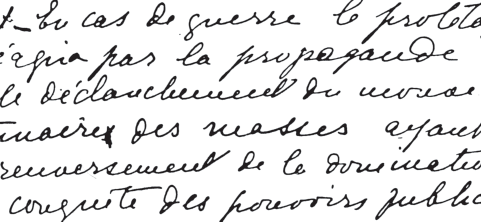 - En cas de guerre le proléta
réagira par la propagande
le déclanchement du mouve
nnaires des masses ayant
renversement de la dominatio
conquête des pouvoirs public